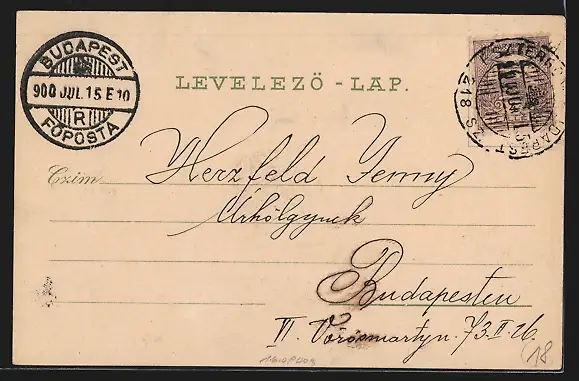 BUDAPEST
900 JUL. 15 E 10
R
FŐPOSTA
LEVELEZŐ - LAP.
ESZTERGOM BUDAPEST
218 ZS.
Czim
Herzfeld Jenny
Úrhölgynek
Budapesten
VI. Vörösmarty u. 73. II. 26.
18